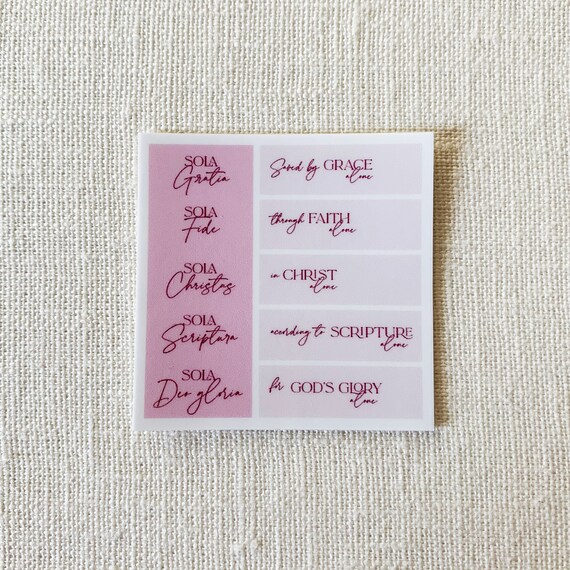 SOLA
Gratia
Saved by GRACE
alone
SOLA
Fide
through FAITH
alone
SOLA
Christus
in CHRIST
alone
SOLA
Scriptura
according to SCRIPTURE
alone
SOLA
Deo gloria
for GOD'S GLORY
alone